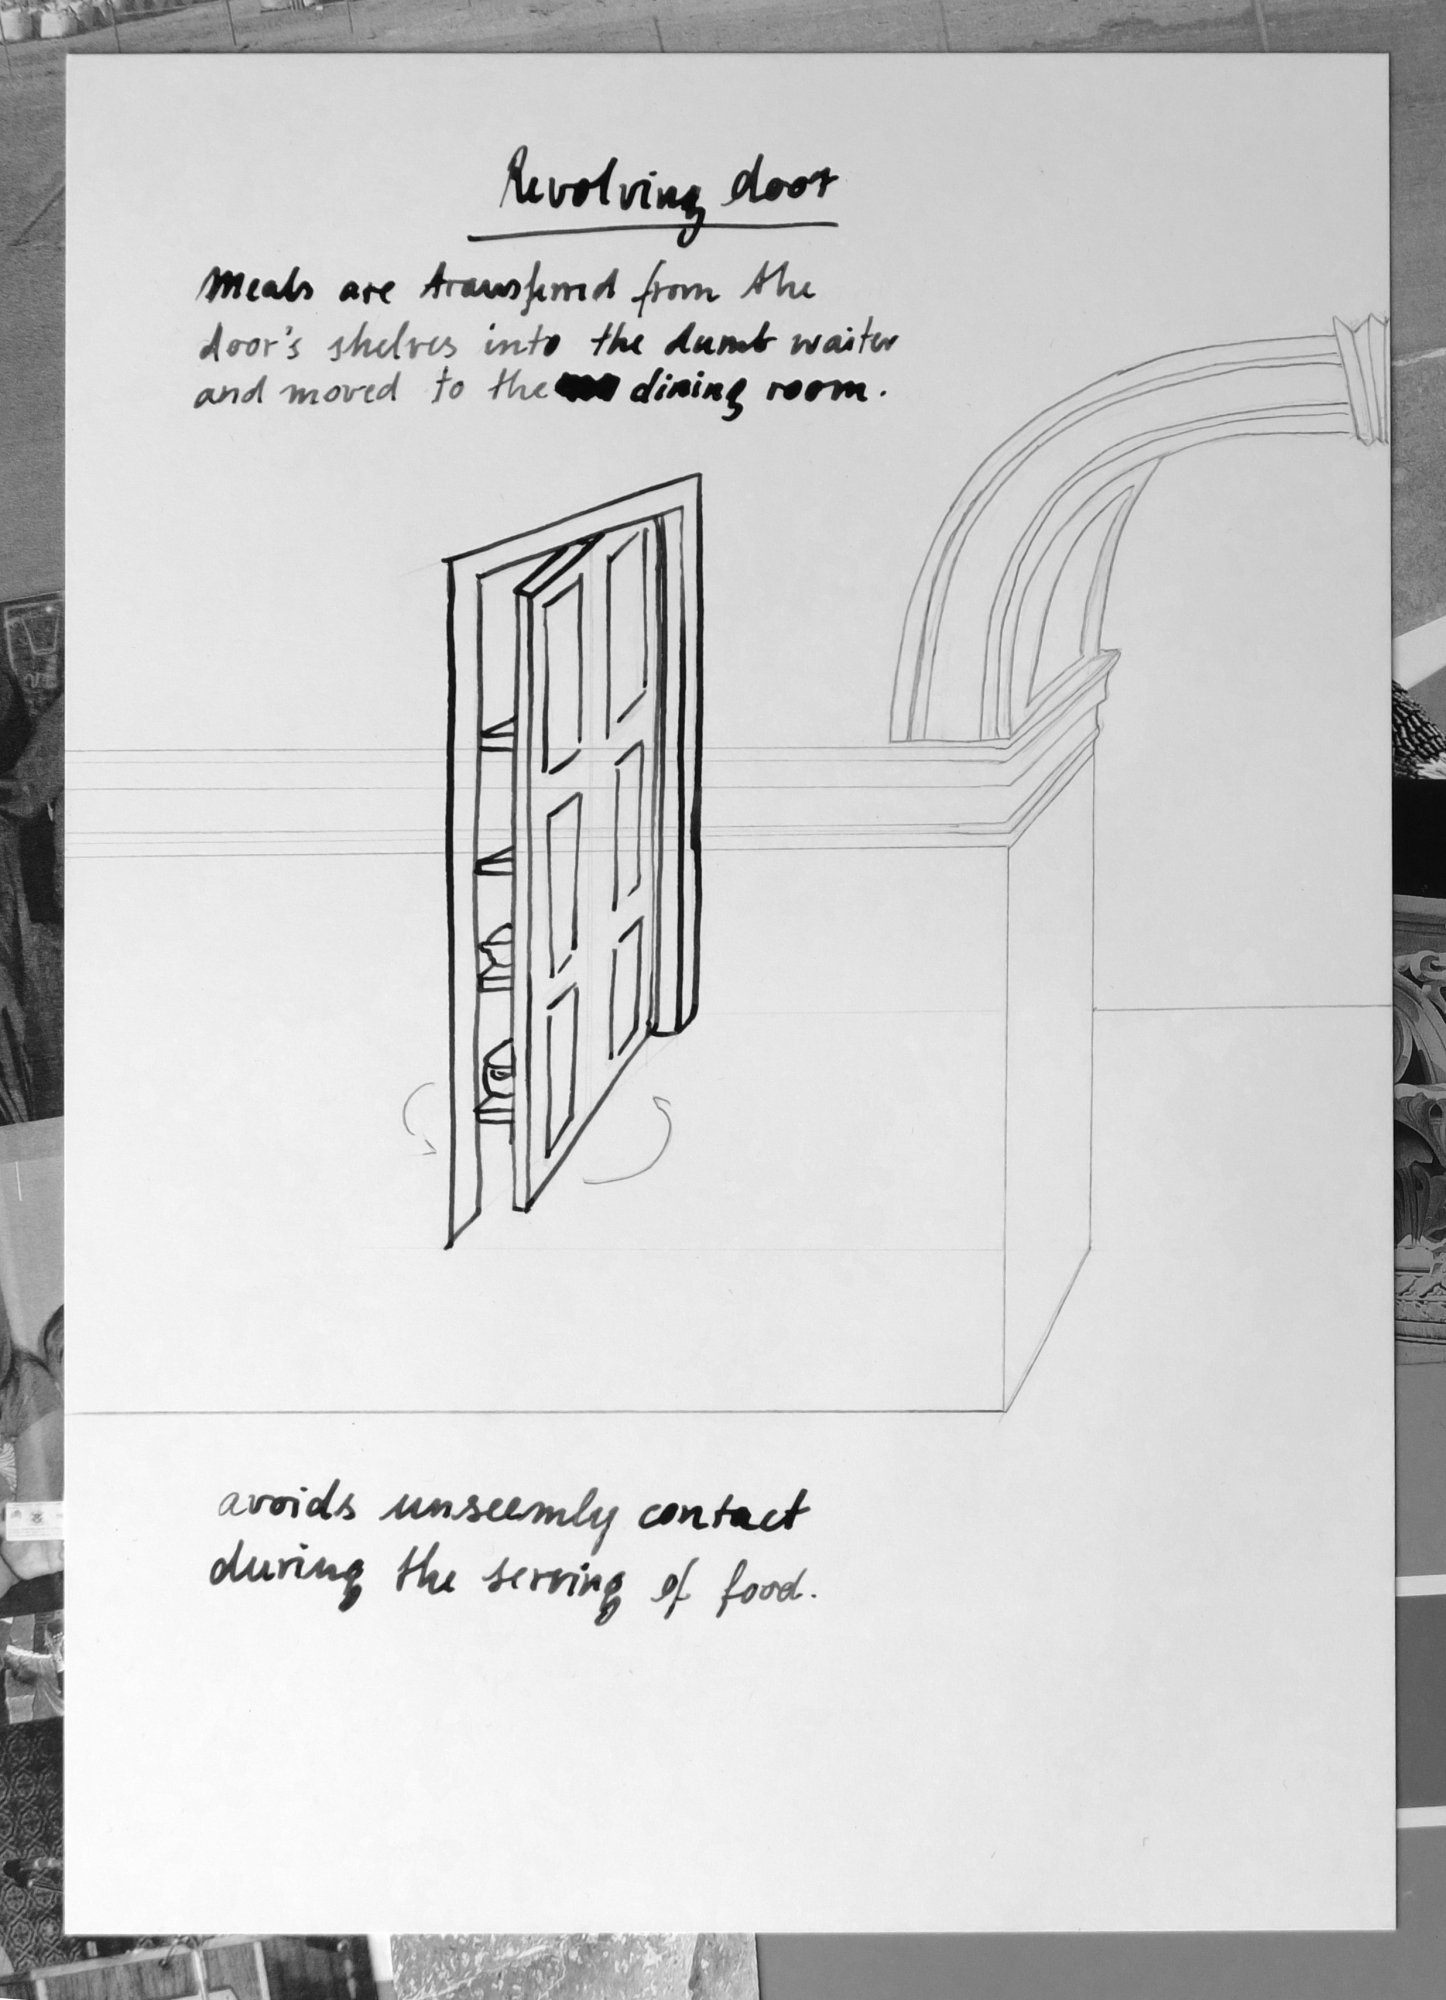 Revolving door
Meals are transferred from the
door's shelves into the dumb waiter
and moved to the dining room.
avoids unseemly contact
during the serving of food.